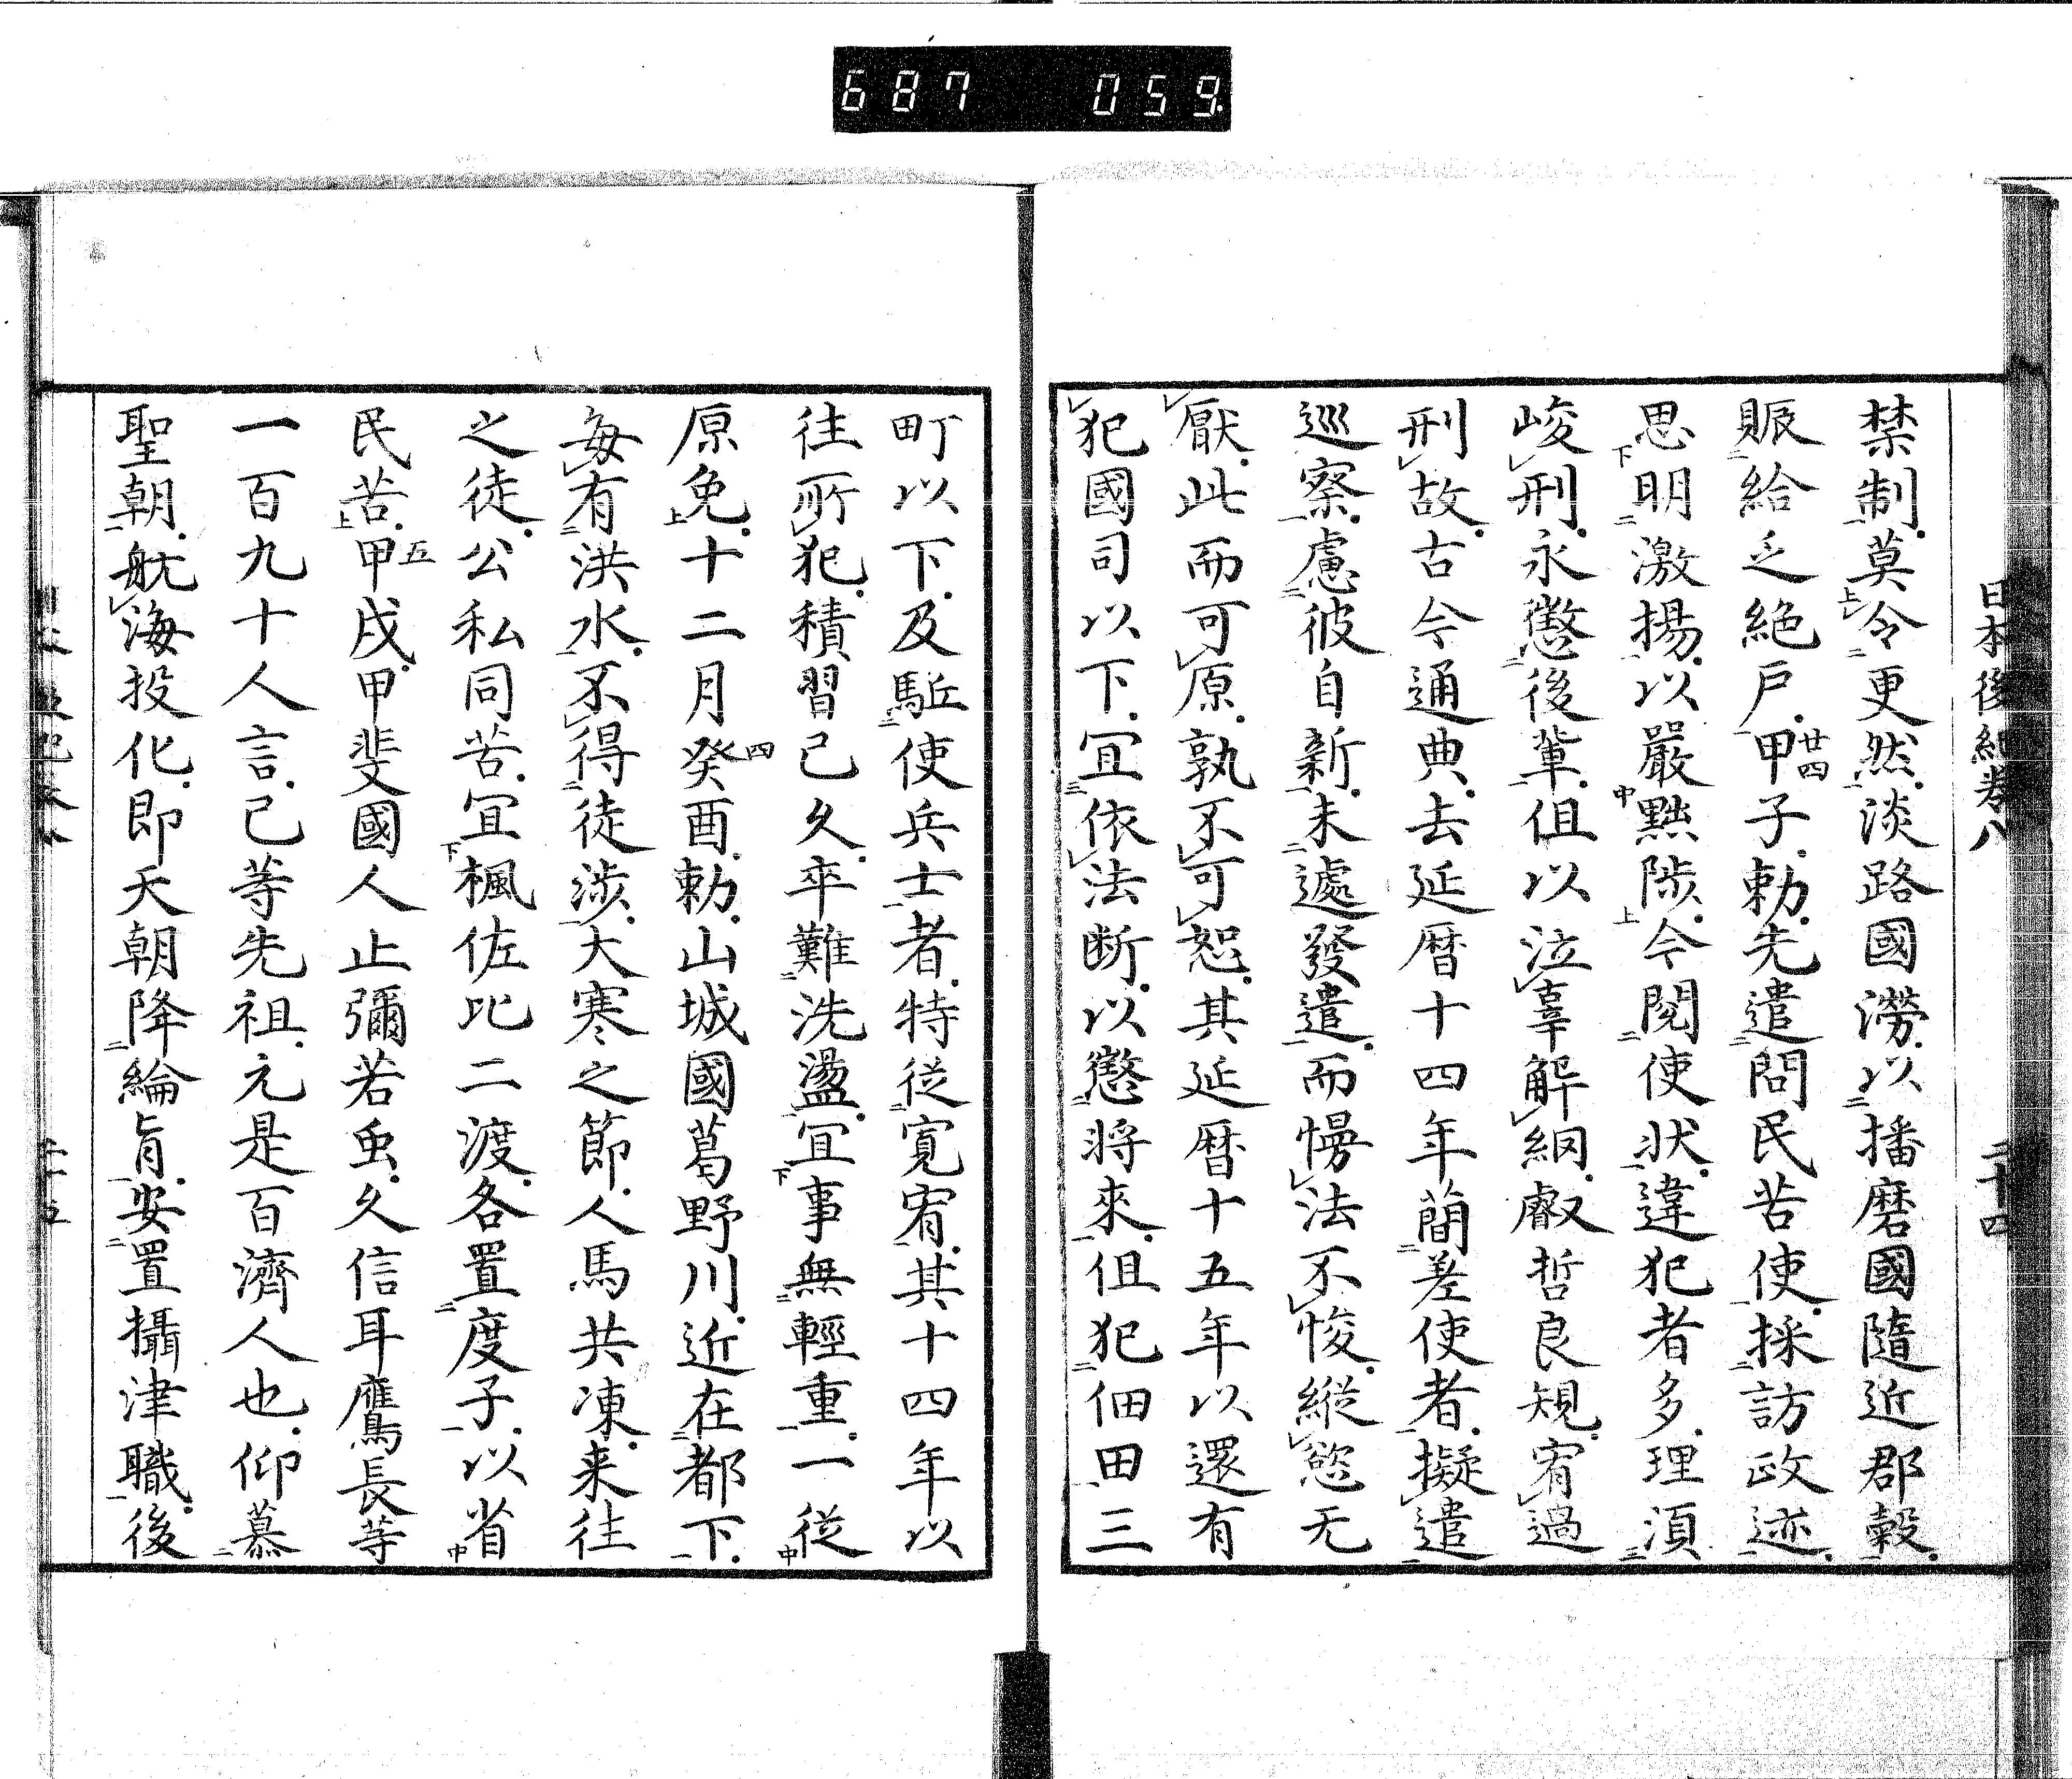 687 059
日本後紀卷八 三十四
禁制莫令更然淡路國澇以播磨國隨近郡穀
賑給乏絕戶廿四甲子勅先遣問民苦使採訪政迹
思明激揚以嚴黜陟今閱使狀違犯者多理須
峻刑永懲後輩但以泣辜解網叡哲良規宥過
刑故古今通典去延曆十四年蕳差使者擬遣
巡察慮彼自新未遽發遣而慢法不悛縱慾无
厭此而可原孰不可恕其延曆十五年以還有
犯國司以下宜依法斷以懲將來但犯佃田三
町以下及駈使兵士者特從寬宥其十四年以
往所犯積習已久卒難洗盪宜事無輕重一從
原免十二月四癸酉勅山城國葛野川近在都下
每有洪水不得徒涉大寒之節人馬共凍来往
之徒公私同苦宜楓佐比二渡各置度子以省
民苦五甲戌甲斐國人止彌若虫久信耳鷹長等
一百九十人言己等先祖元是百濟人也仰慕
聖朝航海投化即天朝降綸旨安置攝津職後